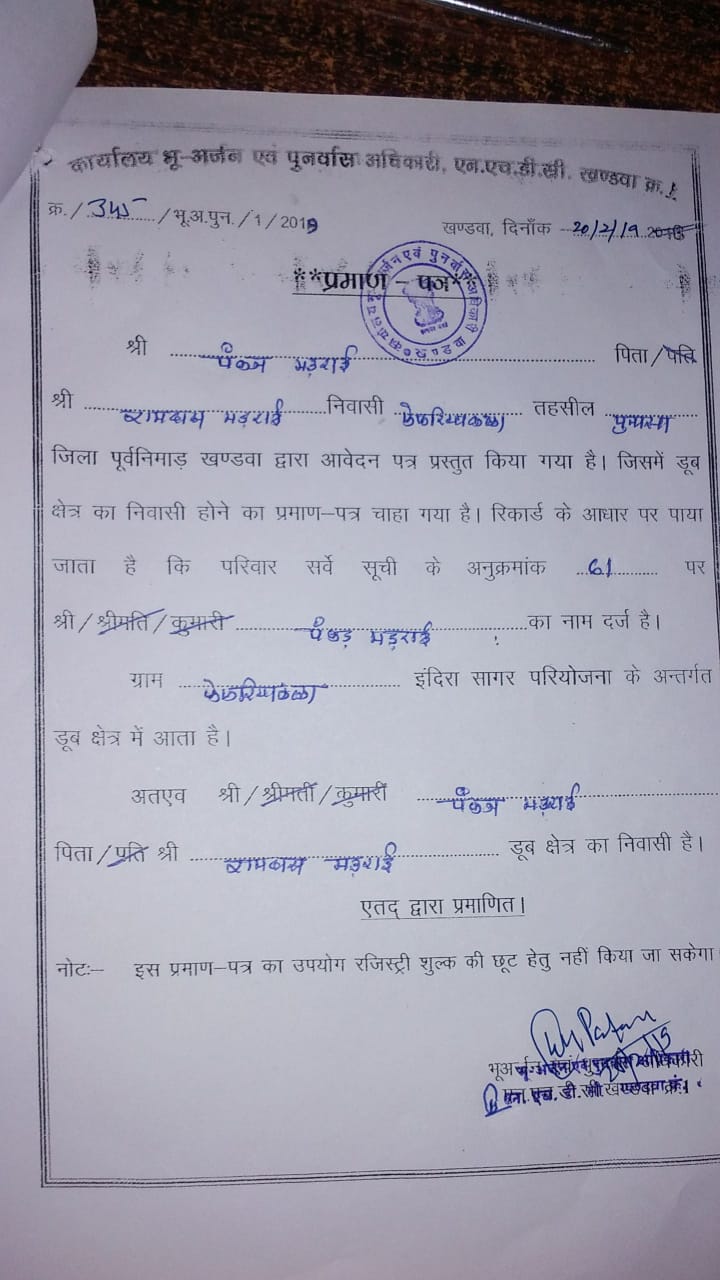 कार्यालय भू-अर्जन एवं पुनर्वास अधिकारी, एन.एच.डी.सी. खण्डवा क्र.1
क्र./345/भू.अ.पुन./1/2019 खण्डवा, दिनाँक 20/2/19
**प्रमाण – पत्र**
श्री पंकज मड़राई पिता/पति
श्री रामदास मड़राई निवासी फेफरियाकला तहसील पुनासा
जिला पूर्वनिमाड़ खण्डवा द्वारा आवेदन पत्र प्रस्तुत किया गया है। जिसमें डूब
क्षेत्र का निवासी होने का प्रमाण–पत्र चाहा गया है। रिकार्ड के आधार पर पाया
जाता है कि परिवार सर्वे सूची के अनुक्रमांक 61 पर
श्री/श्रीमति/कुमारी पंकड़ मड़राई का नाम दर्ज है।
ग्राम फेफरियाकला इंदिरा सागर परियोजना के अन्तर्गत
डूब क्षेत्र में आता है।
अतएव श्री/श्रीमती/कुमारी पंकज मड़राई
पिता/पति श्री रामदास मड़राई डूब क्षेत्र का निवासी है।
एतद् द्वारा प्रमाणित।
नोटः– इस प्रमाण–पत्र का उपयोग रजिस्ट्री शुल्क की छूट हेतु नहीं किया जा सकेगा
भूअर्जन एवं पुनर्वास अधिकारी
एन.एच.डी.सी. खण्डवा क्र.1